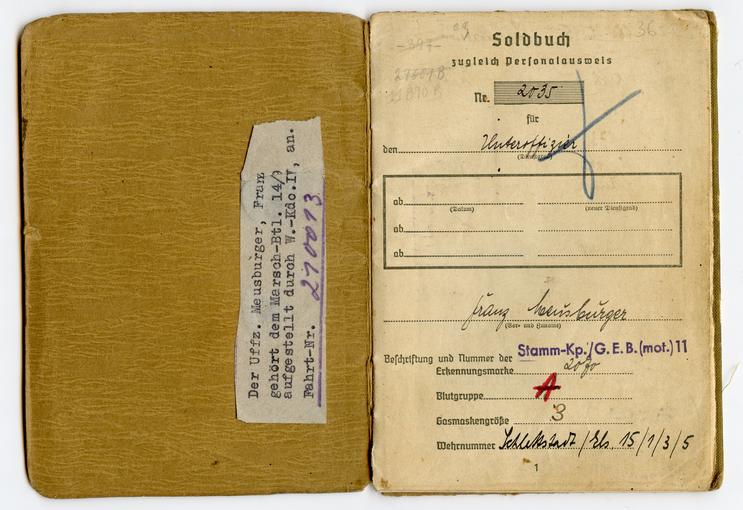 Der Uffz. Meusburger, Franz
gehört dem Marsch-Btl. 14/9
aufgestellt durch W.-Kdo.IV, an.
Fahrt-Nr. 270013
-397-
36
Soldbuch
zugleich Personalausweis
Nr. 2035
für
den Unteroffizier
(Dienstgrad)
ab
(Datum) (neuer Dienstgrad)
ab
ab
Franz Meusburger
(Vor- und Zuname)
Beschriftung und Nummer der Stamm-Kp./G.E.B.(mot.) 11
Erkennungsmarke
Blutgruppe A
Gasmaskengröße 3
Wehrnummer Schlettstadt/Els. 15/1/3/5
1